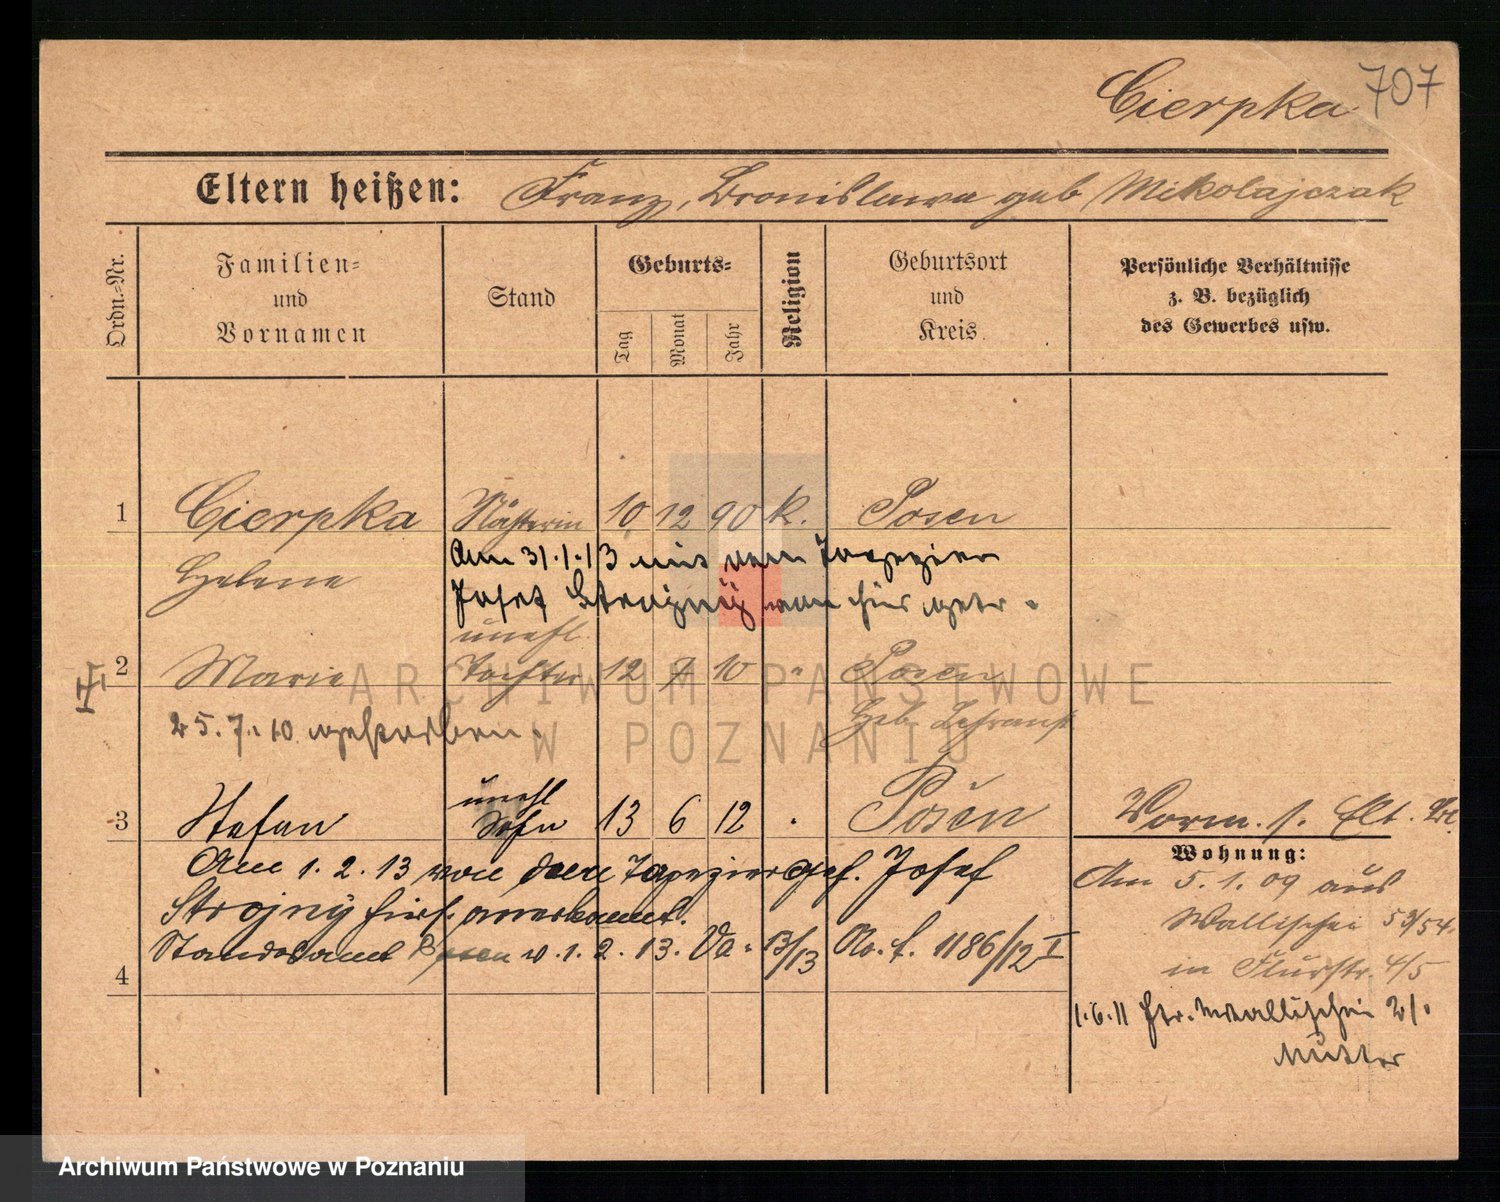 Cierpka 707
Eltern heißen: Franz, Bronislawa geb Mikolajczak
Ordn.=Nr.
Familien=
und
Vornamen
Stand
Geburts=
Tag
Monat
Jahr
Religion
Geburtsort
und
Kreis.
Persönliche Verhältnisse
z. B. bezüglich
des Gewerbes usw.
1 Cierpka Näherin 10 12 90 k. Posen
Helene
Am 31.1.13 mit dem Tapezier
Josef Strojny von hier getr.
unehl.
2 Marie Tochter 12 7 10 " Posen
25.7.10 gestorben.
Geb.
unehl
3 Stefan Sohn 13 6 12 . Posen
Vorm. s. Elt.
Am 1.2.13 von dem Tapeziergeh. Josef
Strojny hies. anerkannt.
Standesamt Posen v. 1.2.13. Va. 13/13 No. f. 1186/12 I
4
Wohnung:
Am 5.1.09 aus
Wallischei 53/54.
in Flurstr. 4/5
1.6.11 Wallischei 21.
Mutter
ARCHIWUM PAŃSTWOWE
W POZNANIU
Archiwum Państwowe w Poznaniu